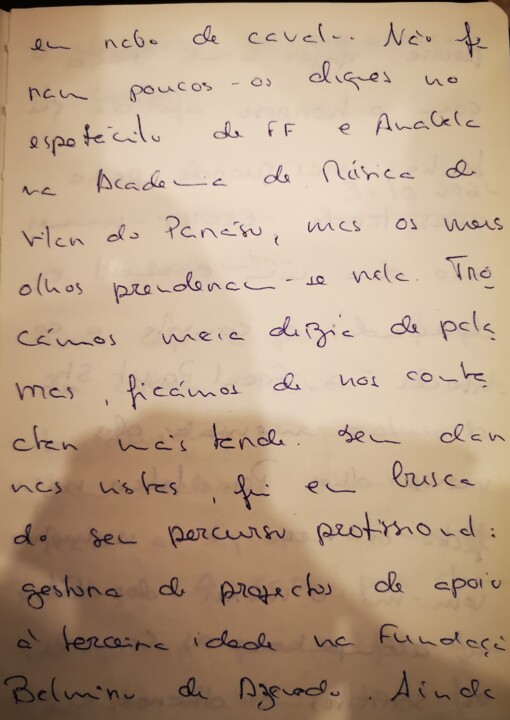 em rabo de cavalo. Não fo
ram poucos - os cliques no
espetáculo de FF e Anabela
na Academia de Música de
Vilar do Paraíso, mas os meus
olhos prenderam-se nela. Tro
cámos meia dúzia de pala
vras, ficámos de nos conta
ctar mais tarde. Sem dar
nas vistas, fui em busca
do seu percurso profissional:
gestora de projectos de apoio
à terceira idade na Fundaçã
Belmiro de Azevedo. Ainda